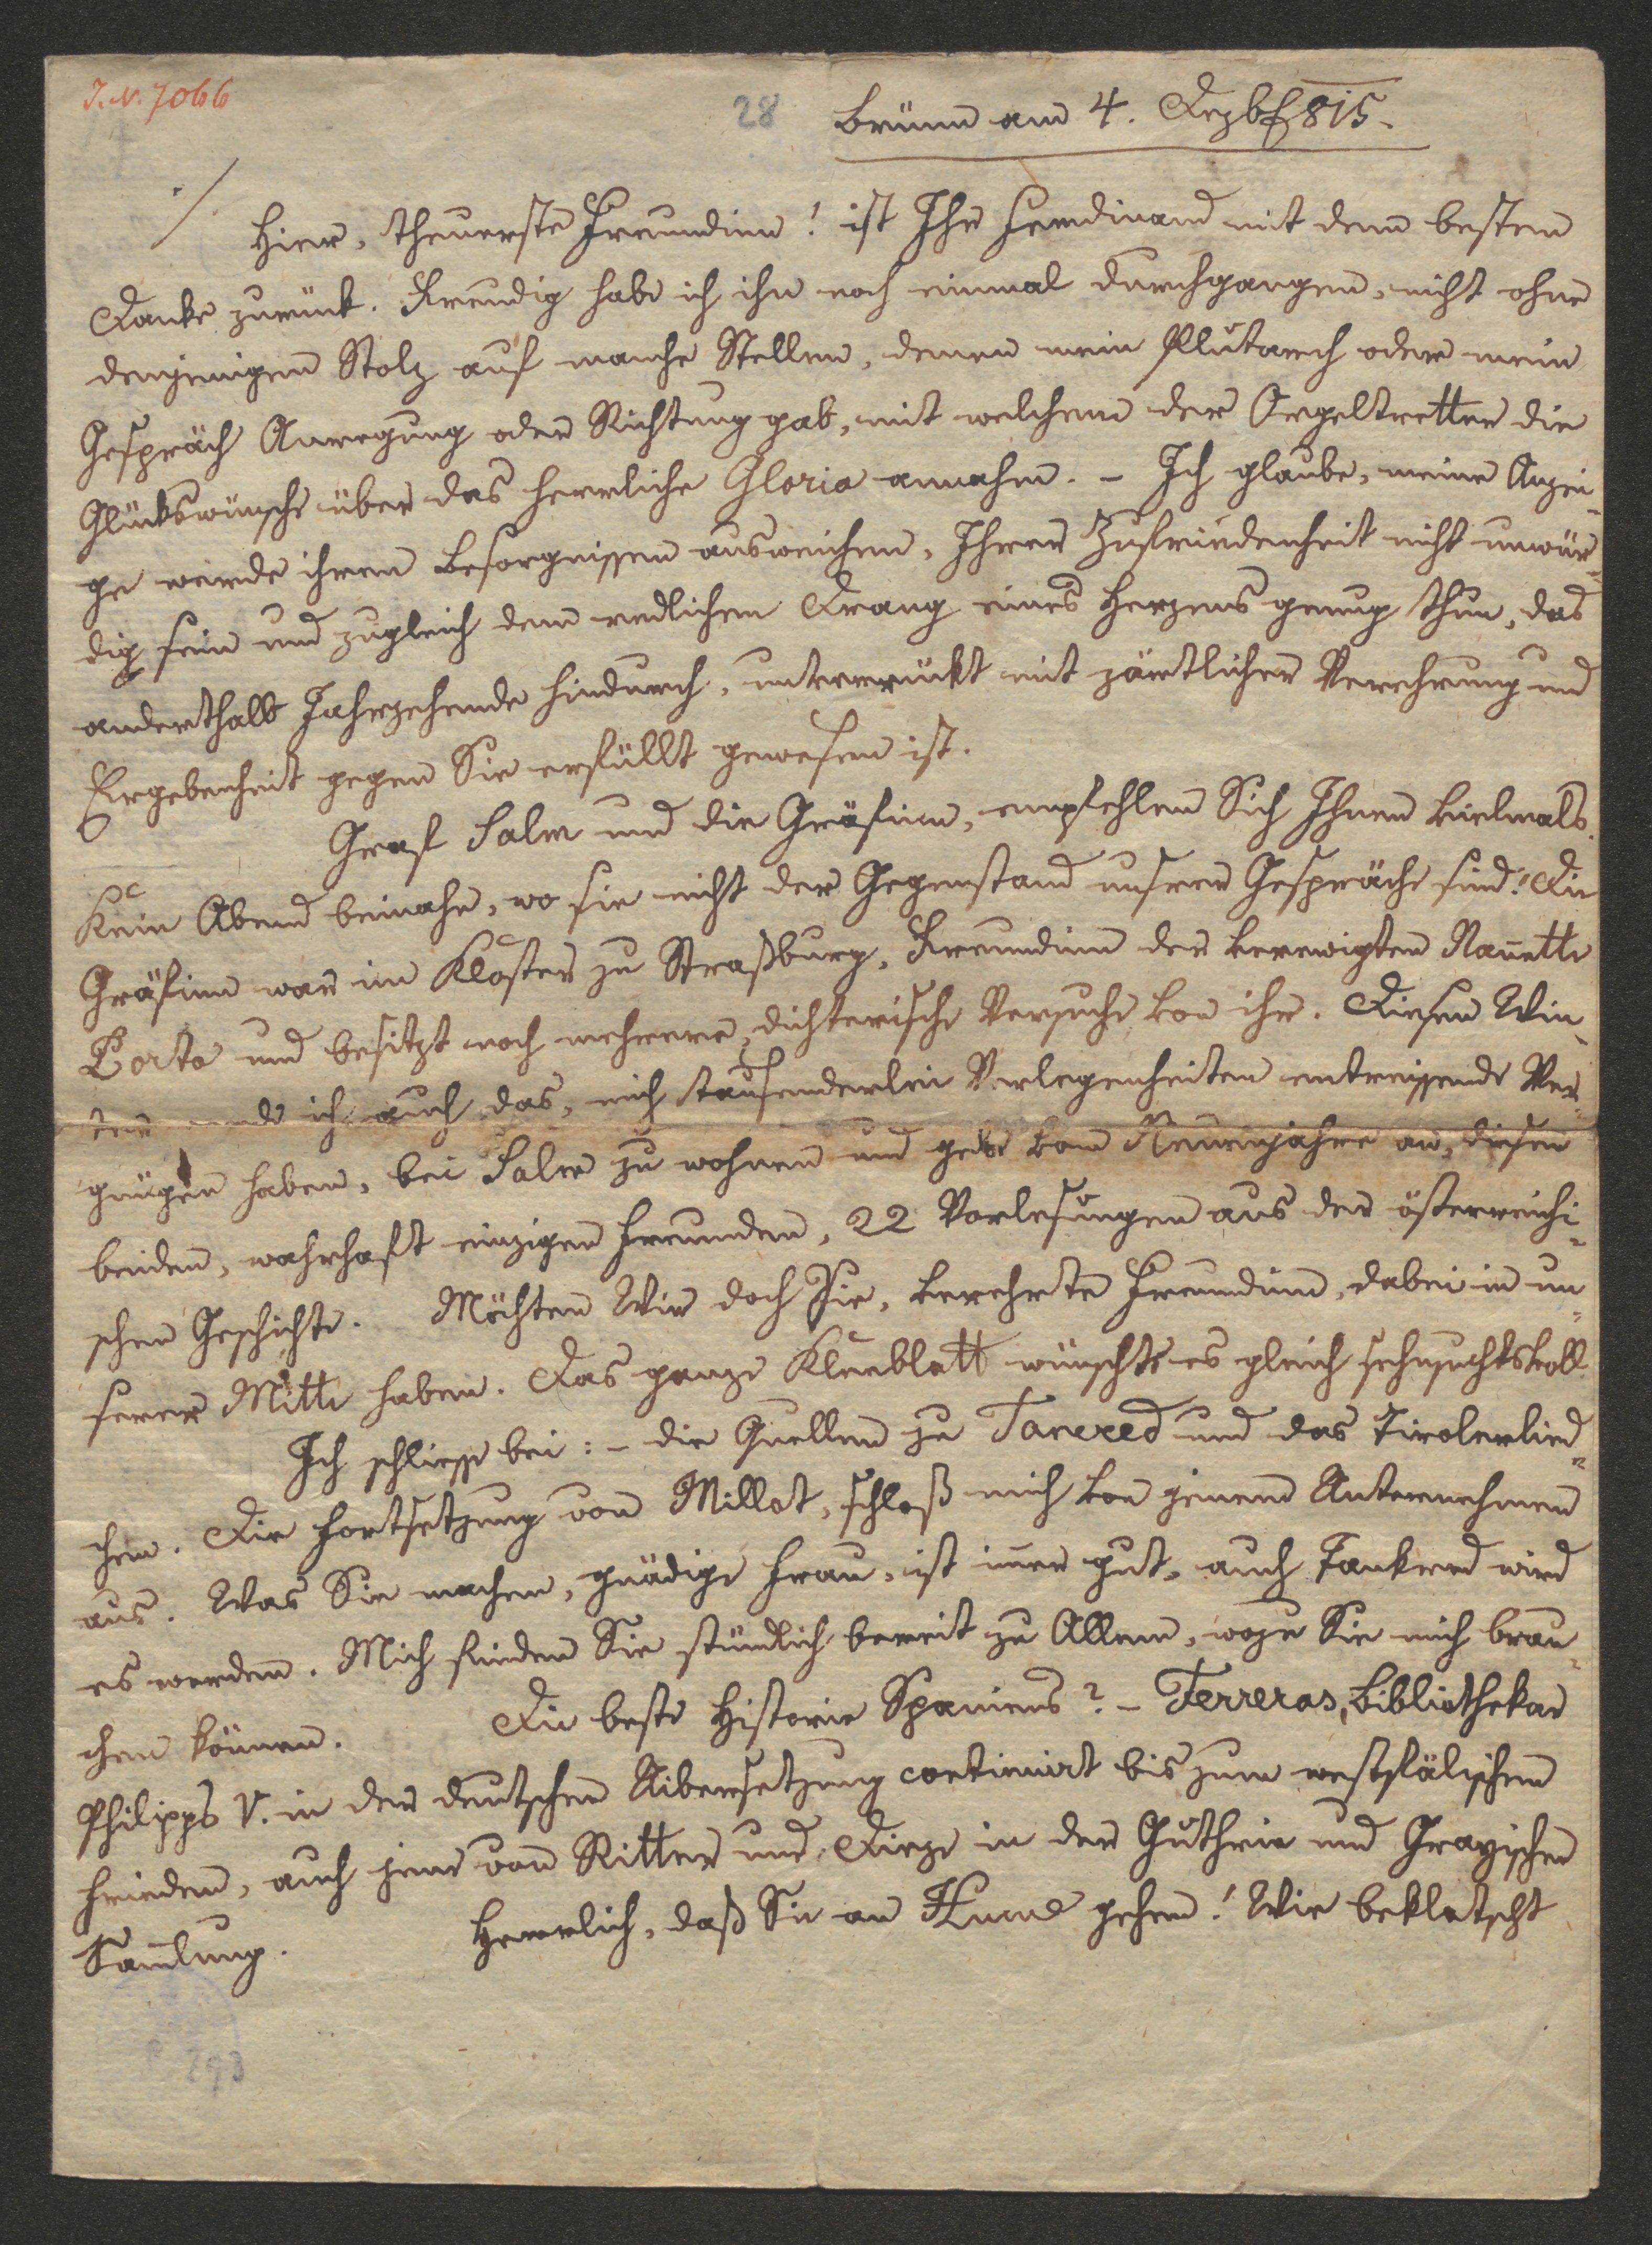 I. N. 7066
28
Brünn am 4. Dezbr 815.
./.
Hier, theuerste Freundinn! ist Ihr Ferdinand mit dem besten
Danke zurück. Freudig habe ich ihn noch einmal durchgangen, nicht ohne
denjenigen Stolz auf manche Stellen, denen mein Plutarch oder mein
Gespräch Anregung oder Richtung gab, mit welchem der Orgeltretter die
Glückswünsche über das herrliche Gloria annahm. – Ich glaube, meine Anzei-
ge werde ihren Besorgnissen ausweichen, Ihrer Zufriedenheit nicht unwür-
dig sein und zugleich dem redlichen Drang eines Herzens genug thun, das
anderthalb Jahrzehende hindurch, unverrückt mit zärtlicher Verehrung und
Ergebenheit gegen Sie erfüllt gewesen ist.
Graf Salm und die Gräfinn, empfehlen Sich Ihnen vielmals.
Kein Abend beinahe, wo sie nicht der Gegenstand unsrer Gespräche sind! Die
Gräfinn war im Kloster zu Straßburg, Freundinn der verewigten Nanette
Porta und besitzt noch mehrere dichterische Versuche von ihr. Diesen Win-
ter werde ich auch das, mich tausenderlei Verlegenheiten entreissende Ver-
gnügen haben, bei Salm zu wohnen und gebe vom Neuenjahre an, diesen
beiden, wahrhaft einzigen Freunden, 22 Vorlesungen aus der österreichi-
schen Geschichte. Möchten Wir doch Sie, verehrte Freundinn, dabei in un-
serer Mitte haben. Das ganze Kleeblatt wünschte es gleich sehnsuchtsvoll.
Ich schliesse bei: – die Quellen zu Tancred und das Tirolerlied-
chen. Die Fortsetzung von Millot, schloß mich von jenem Unternehmen
aus. Was Sie machen, gnädige Frau, ist imer gut, auch Tankred wird
es werden. Mich finden Sie stündlich bereit zu Allem, wozu Sie mich brau-
chen können. Die beste Historie Spaniens? – Ferreras, Bibliothekar
Philipps V. in der deutschen Uibersetzung continuirt bis zum westfälischen
Frieden, auch jene von Ritter und Dieze in der Guthrie und Grayischen
Samlung. Herrlich, daß Sie an Hume gehen! Wie beklatscht